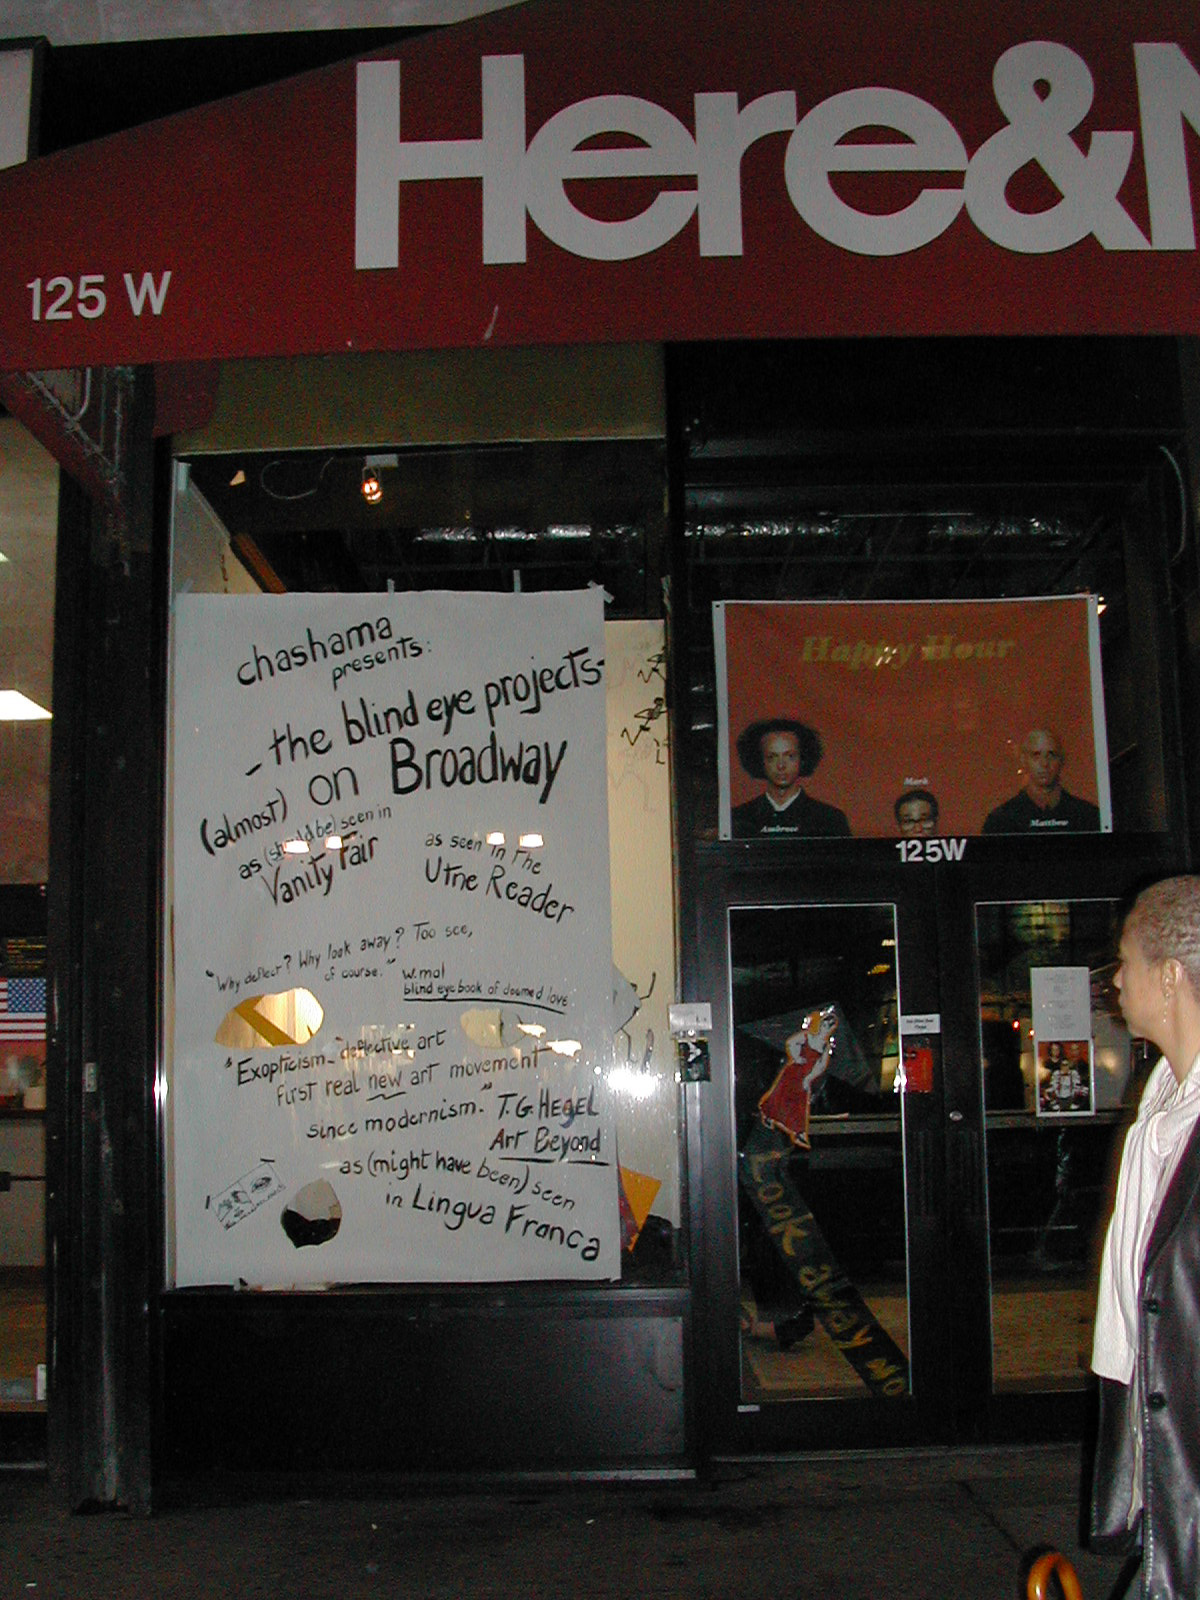 Here&
125 W
chashama
presents:
- the blind eye projects-
(almost) on Broadway
as (should be) seen in
Vanity Fair
as seen in The
Utne Reader
"Why deflect? Why look away? Too see,
of course."
w.mol
blind eye book of doomed love
"Exopticism - deflective art
first real new art movement
since modernism." T.G. HEGEL
Art Beyond
as (might have been) seen
in Lingua Franca
Happy Hour
Ambrose
Mark
Matthew
125W
Look away no